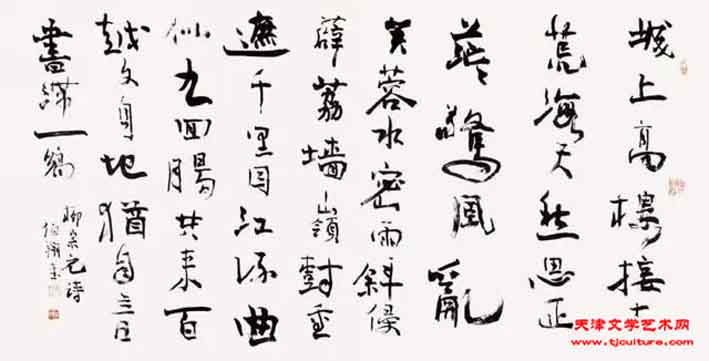 城上高樓接大
荒海天愁思正
茫驚風亂
芙蓉水密雨斜侵
薜荔墻嶺樹重
遮千里目江流曲
似九回腸共来百
越文身地猶自音
書滯一鄉
柳宗元詩
天津文学艺术网
www.tjculture.com